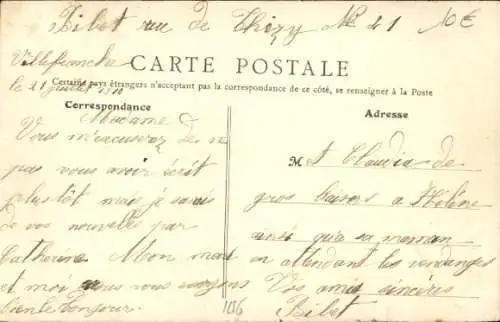 Bibet rue de Thizy No 41 10€
Villefranche
le 21 juillet 1910
CARTE POSTALE
Certains pays étrangers n'acceptant pas la correspondance de ce côté, se renseigner à la Poste
Correspondance
Madame
Vous m'excuserez de ne
pas vous avoir écrit
plus tôt mais je savais
de vos nouvelles par
Catherine Mon mari
et moi vous envoyons
bien le bonjour
Adresse
M et Claudia de
gros baisers a Hélène
ainsi qu'a sa maman
en attendant les vendanges
Vos amis sincères
Bibet
1016